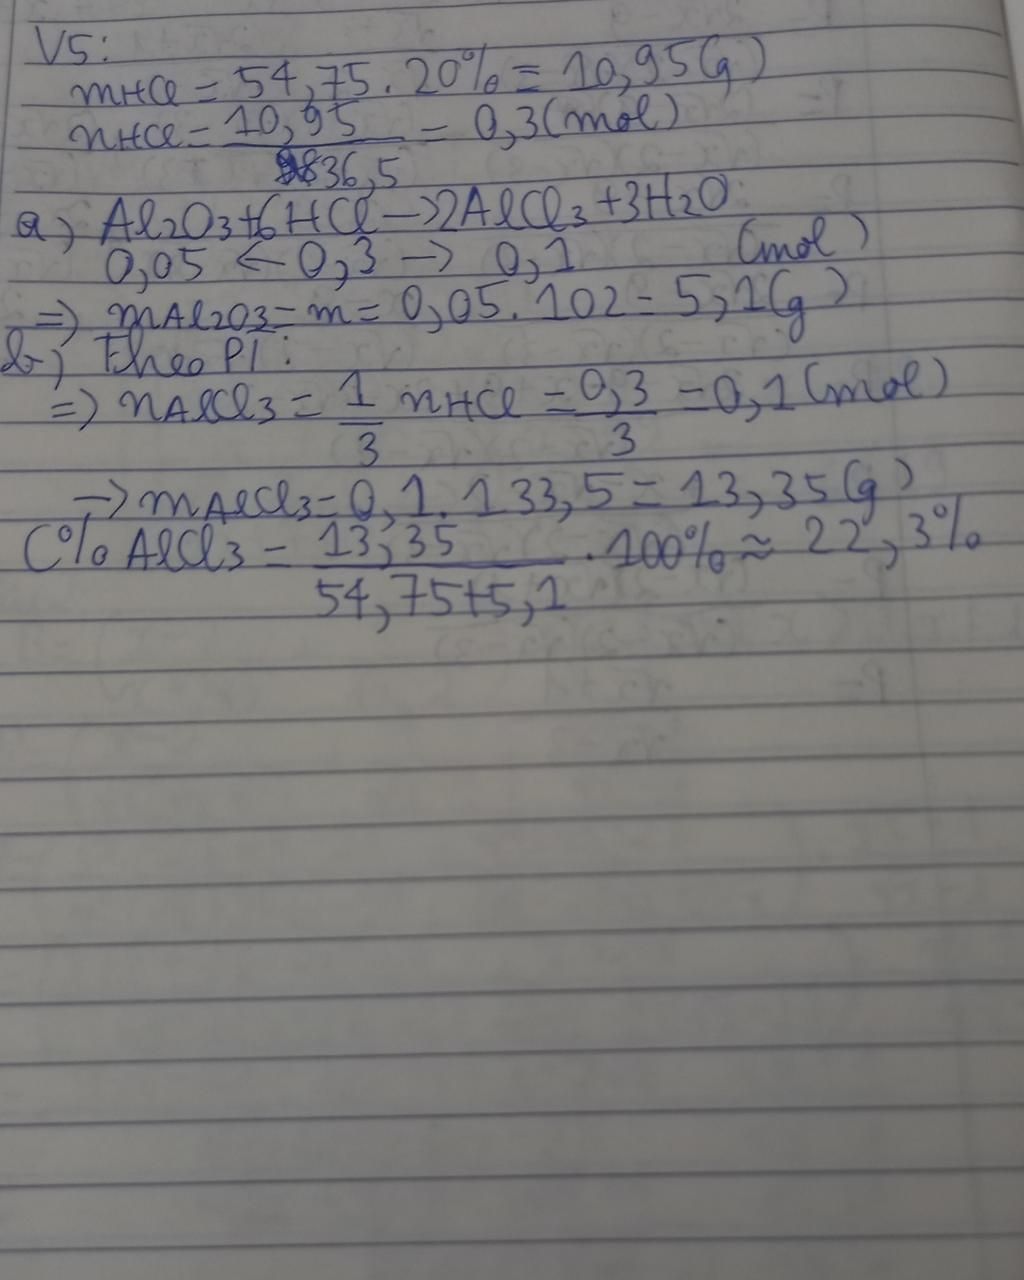 V5:
mHCl = 54,75 . 20% = 10,95(g)
nHCl = 10,95 / 36,5 = 0,3(mol)
a) Al2O3+6HCl → 2AlCl3 + 3H2O
0,05 ← 0,3 → 0,1 (mol)
=> mAl2O3 = m = 0,05 . 102 = 5,1(g)
b) Theo PT:
=> nAlCl3 = 1/3 nHCl = 0,3/3 = 0,1(mol)
→ mAlCl3 = 0,1 . 133,5 = 13,35(g)
C% AlCl3 = 13,35 / 54,75+5,1 . 100% ≈ 22,3%